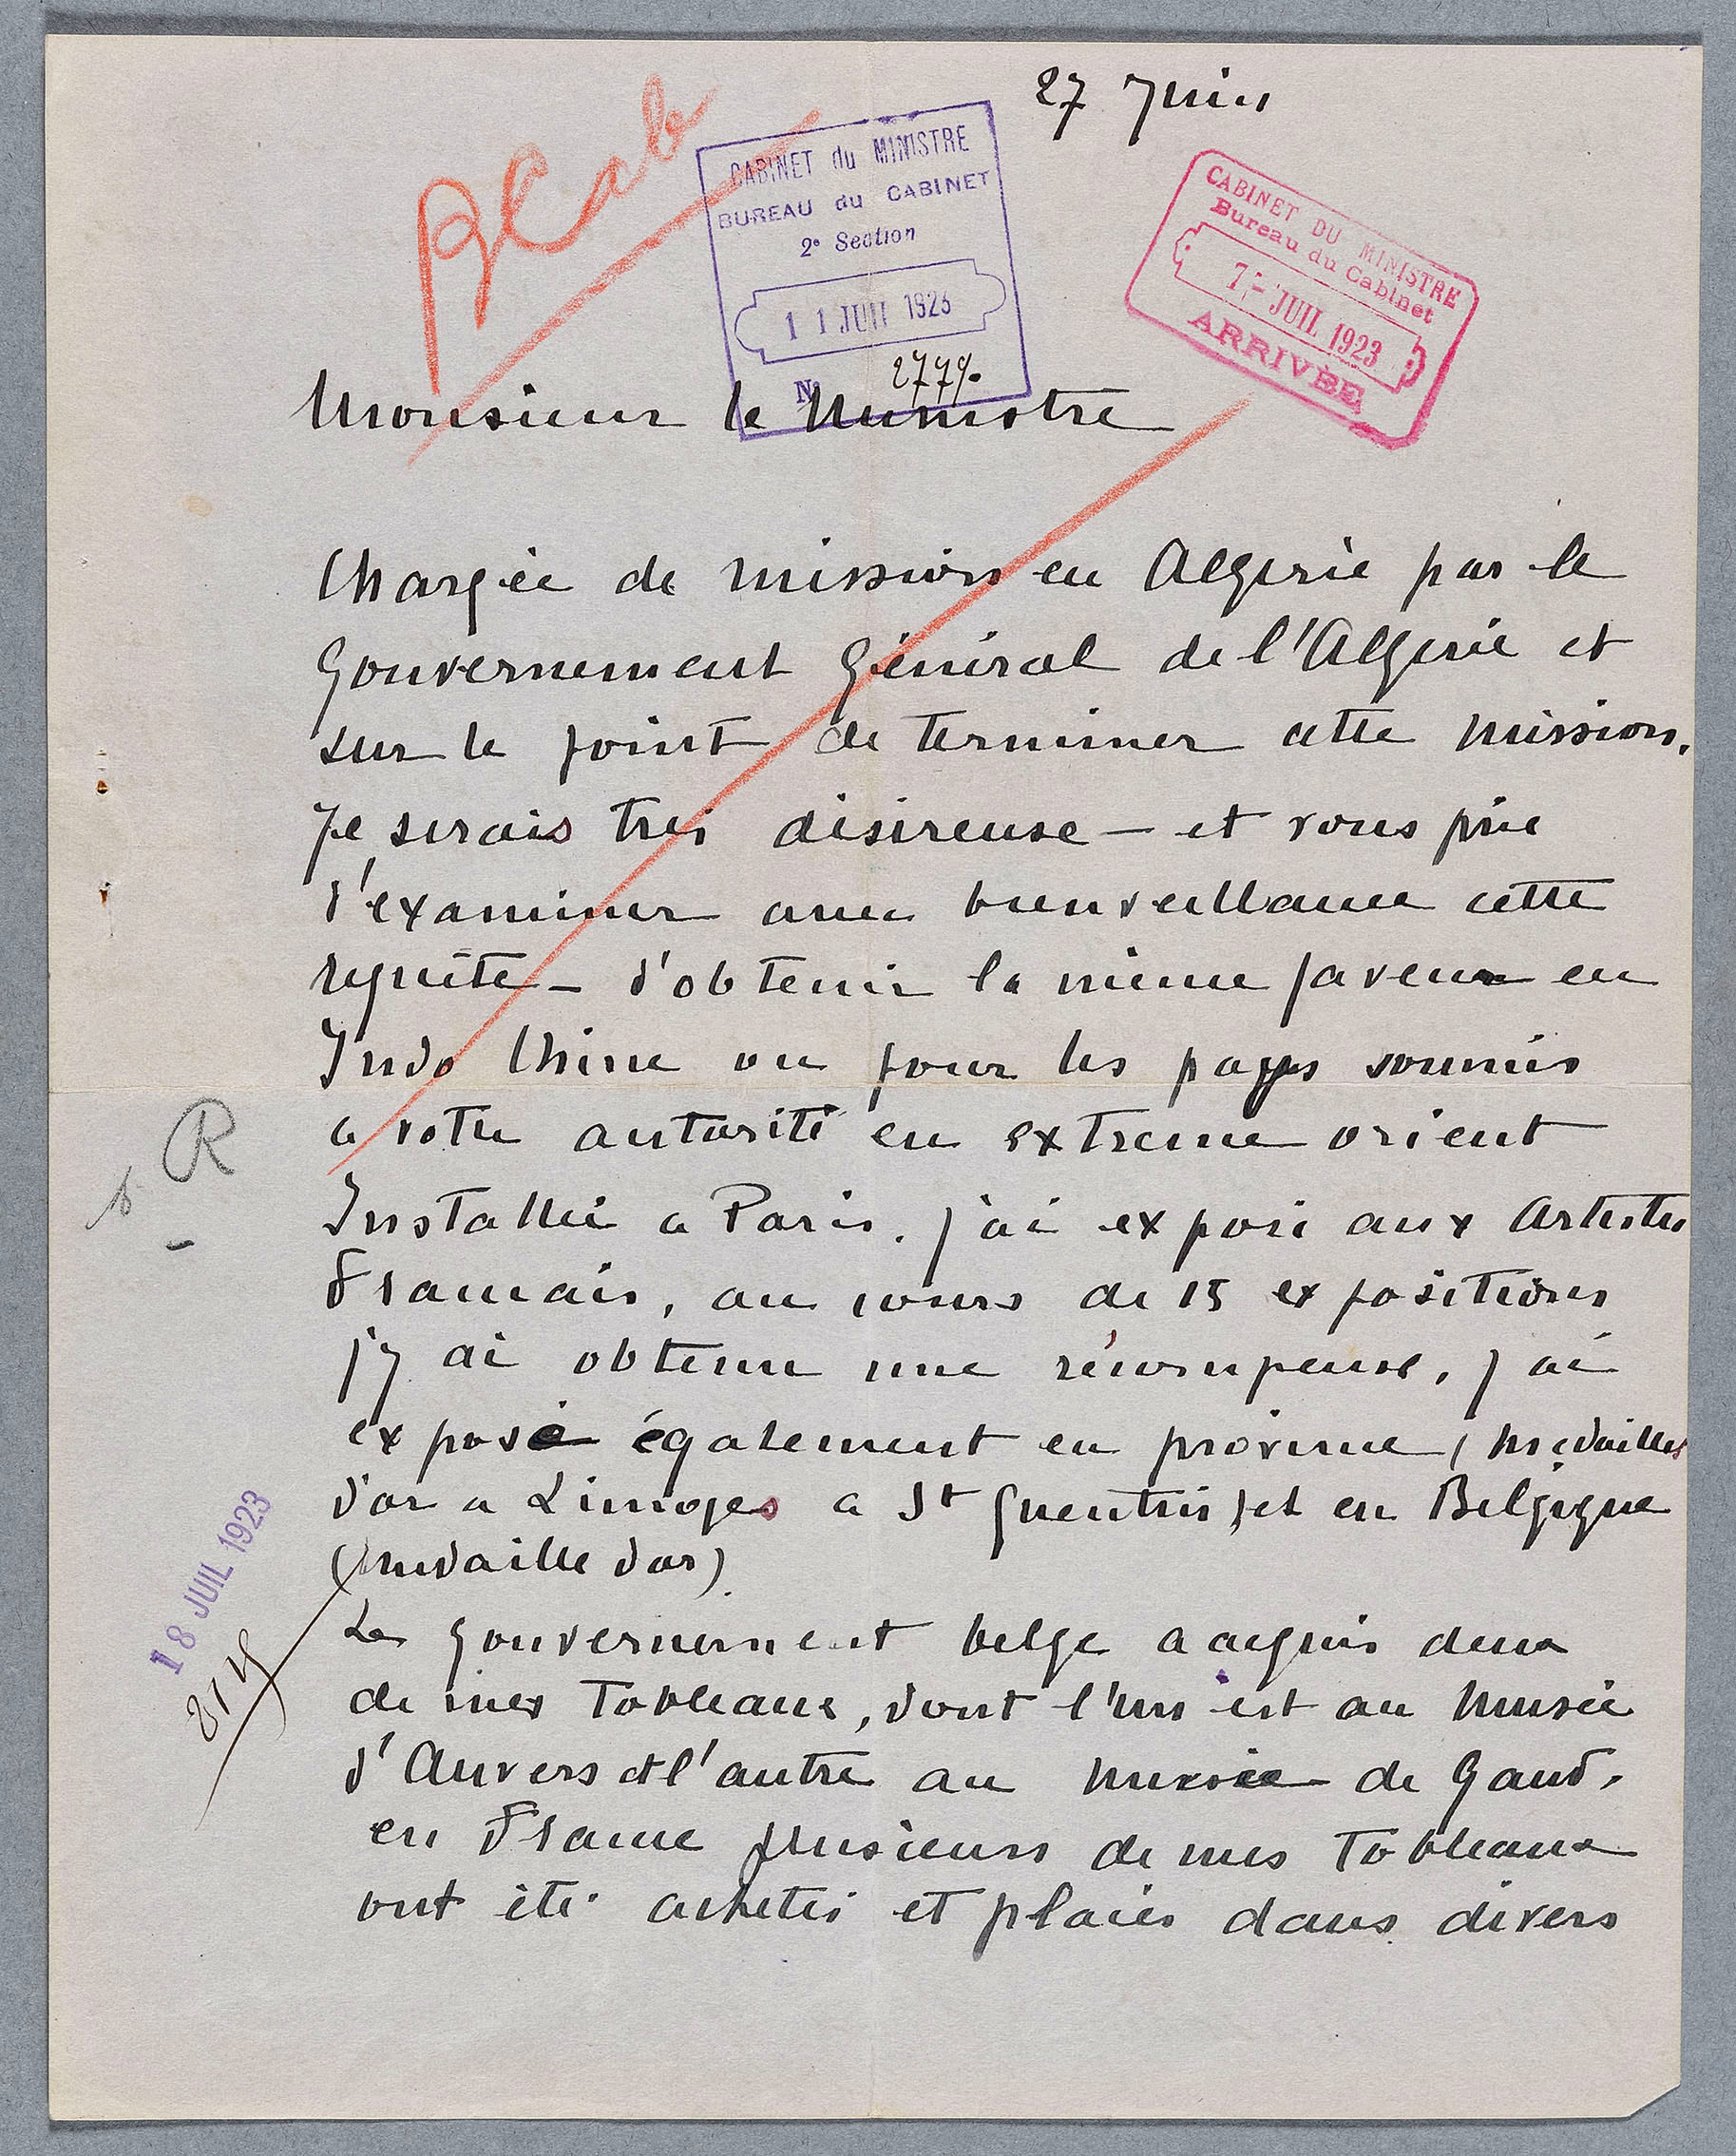 27 Juin
BCab
CABINET du MINISTRE
BUREAU du CABINET
2e Section
11 JUIL 1923
N
CABINET DU MINISTRE
Bureau du Cabinet
7 - JUIL 1923
ARRIVÉE
Monsieur le Ministre
Chargée de mission en Algérie par le
Gouvernement Général de l'Algérie et
sur le point de terminer cette mission.
Je serais très désireuse — et vous prie
d'examiner avec bienveillance cette
requête — d'obtenir la même faveur en
Indo Chine ou pour les pays soumis
a votre autorité en extreme orient
Installée a Paris. j'ai exposé aux Artistes
Français, au cours de 15 expositions
j'y ai obtenu une récompense, j'ai
exposé également en province (médailles
d'or a Limoges a St Quentin) et en Belgique
(médaille d'or).
Le gouvernement belge a acquis deux
de mes Tableaux, dont l'un est au Musée
d'Anvers et l'autre au musée de Gand.
en France plusieurs de mes Tableaux
ont été achetés et placés dans divers
R
18 JUIL 1923